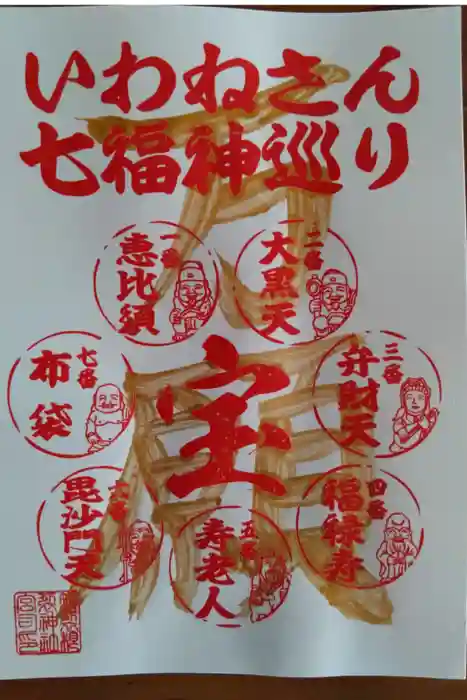 いわねさん
七福神巡り
一番
恵比須
二番
大黒天
三番
弁財天
四番
福禄寿
五番
寿老人
六番
毘沙門天
七番
布袋
宝